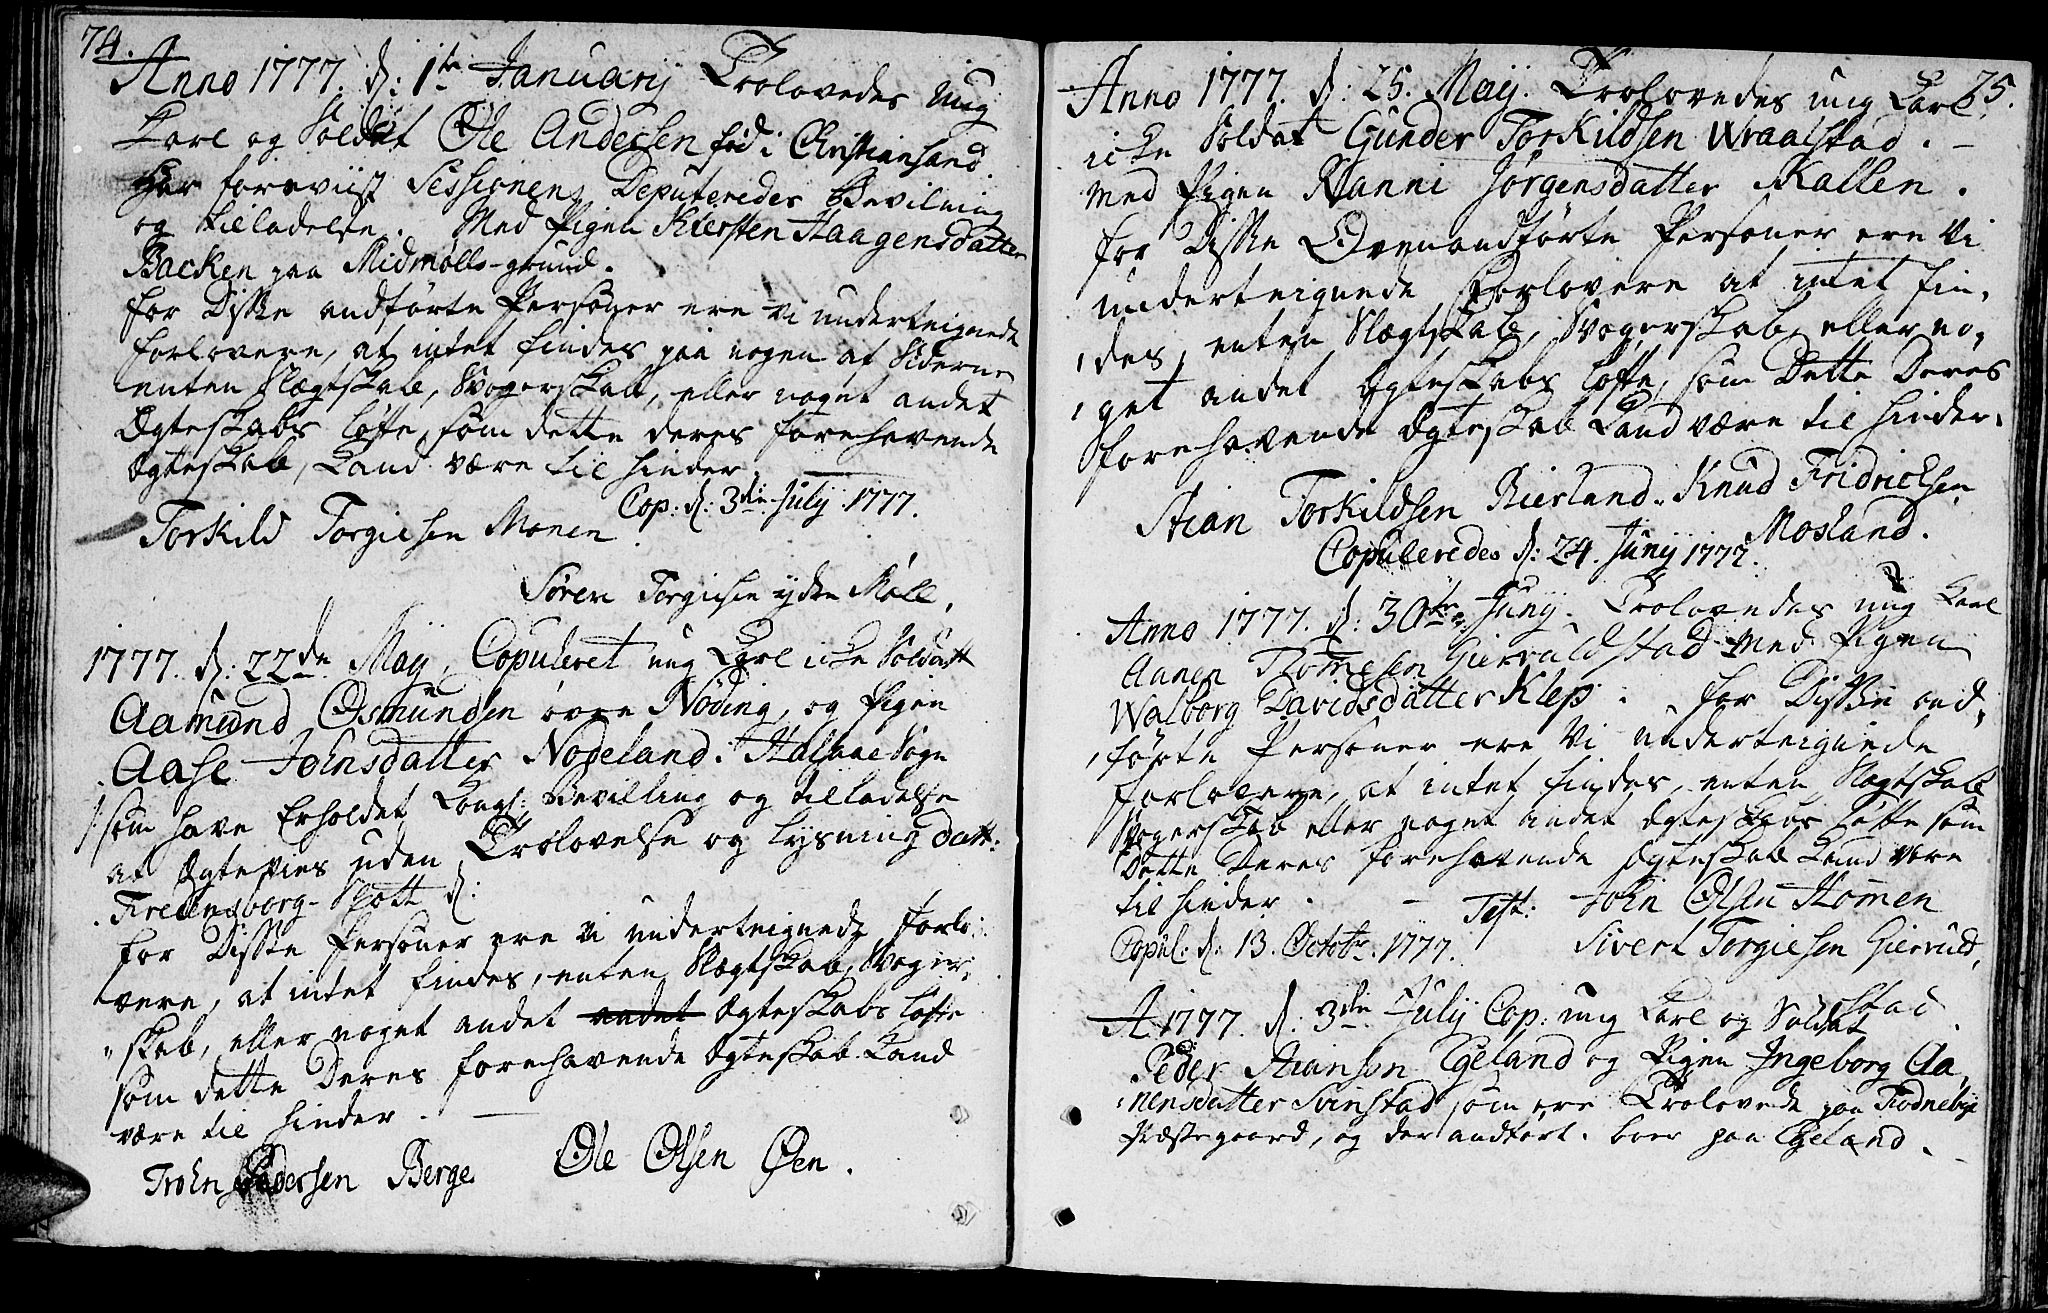 74.
Anno 1777. d: 1te Januarij Trolovedes ung
Karl og Soldat Ole Andersen fød i Christiansand
har foreviist Sessionens Deputeredes Bevilning
og tilladelse. Med Pigen Kiersten Haagensdatter
Backen paa Midmølls-grund.
for Disse andførte Personer ere Vi underteignede
forlovere, at intet findes paa nogen af Siderne
enten Slægtskab, Svogerskab, eller noget andet
Ægteskabs løfte, som dette deres forehavende
Ægteskab, Kand være til hinder.
Cop: d: 3die July 1777.
Torkild Torgiesen Monen
Søren Torgiesen ydre Møll.
1777. d: 22de Maij, Copuleret ung Karl icke Soldatt
Aamund Osmundsen øvre Nøding, og Pigen
Aase Johnsdatter Nodeland. Halsaae Sogn
/:som have Erholdet Kongl: Bevilling og tilladelse
at Ægtevies uden Trolovelse og lysning datt:
Fredensborg-Slott d:
for Disse Personer ere Vi underteignede forlo-
vere, at intet findes, enten Slægtskab, Svoger-
skab, eller noget andet andet Ægteskabs løfte
som dette Deres forehavende Ægteskab Kand
være til hinder.
John Pedersen Berge Ole Olsen Øen.
75.
Anno 1777. d: 25. Maij. Trolovedes ung Karl
icke Soldat Gunder Torkildsen Wraalstad.
med Pigen Ranni Jørgensdatter Kallen.
for Disse Ovenandførte Personer ere Vi
underteignede Forlovere at intet fin-
des, enten Slægtskab, Svogerskab, eller no-
get andet Ægteskabs løfte, som Dette Deres
forehavende Ægteskab Kand være til hinder.
Stian Torkildsen Rierland. Knud Fridrichsen
Mosland.
Copuleredes d: 24. Junij 1777.
Anno 1777. d: 30te Junij. Trolovedes ung Karl
Aanen Thomesen Gieruldstad med Pigen
Walborg Davidsdatter Klep. for Disse and-
førte Personer ere Vi underteignede
forlovere, at intet findes, enten Slægtskab
Svogerskab eller noget andet Ægteskabs løfte som
Dette Deres forehavende Ægteskab Kand være
til hinder. Test: John Olsen Homen
Copul: d: 13. Octobr. 1777. Sivert Torgiesen Gieruld-
stad.
A 1777. d: 3die Julij Cop: ung Karl og Soldat
Peder Stianson Egeland og Pigen Ingeborg Aa-
nensdatter Svinstad som ere Trolovede paa
Præstegaard, og der andført. boer paa Egeland.